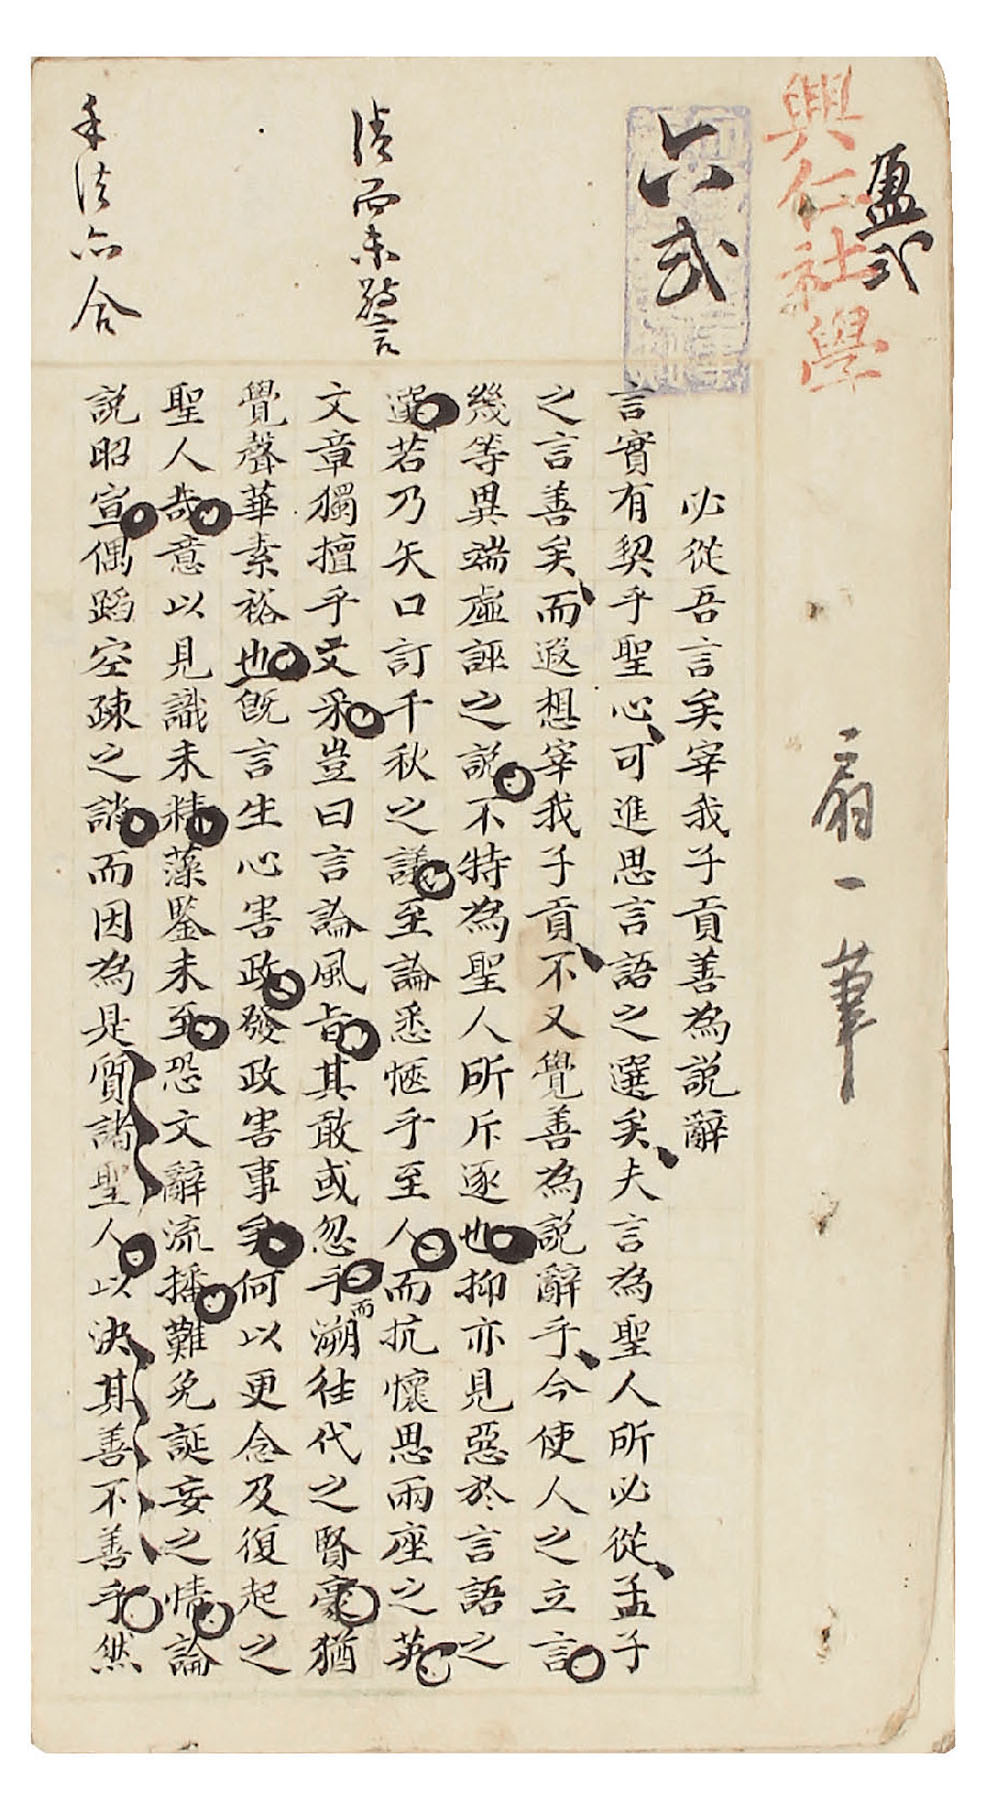 盈弍
興仁社學
扇一筆
六弍
必從吾言矣宰我子貢善為説辭
言實有契乎聖心可進思言語之選矣夫言為聖人所必從孟子
之言善矣而遐想宰我子貢不又覺善為説辭乎今使人之立言
幾等異端虛誣之説不特為聖人所斥逐也抑亦見惡於言語之
選若乃矢口訂千秋之議至論悉愜乎至人而抗懷思兩座之英
文章獨擅乎文采豈曰言論風旨其敢或忽乎而溯往代之賢豪猶
覺聲華素裕也旣言生心害政發政害事矣何以更念及復起之
聖人哉意以見識未精藻鑒未至恐文辭流播難免誕妄之情論
説昭宣偶蹈空疎之誚而因為是質諸聖人以決其善不善乎然
清而未警
手法亦合